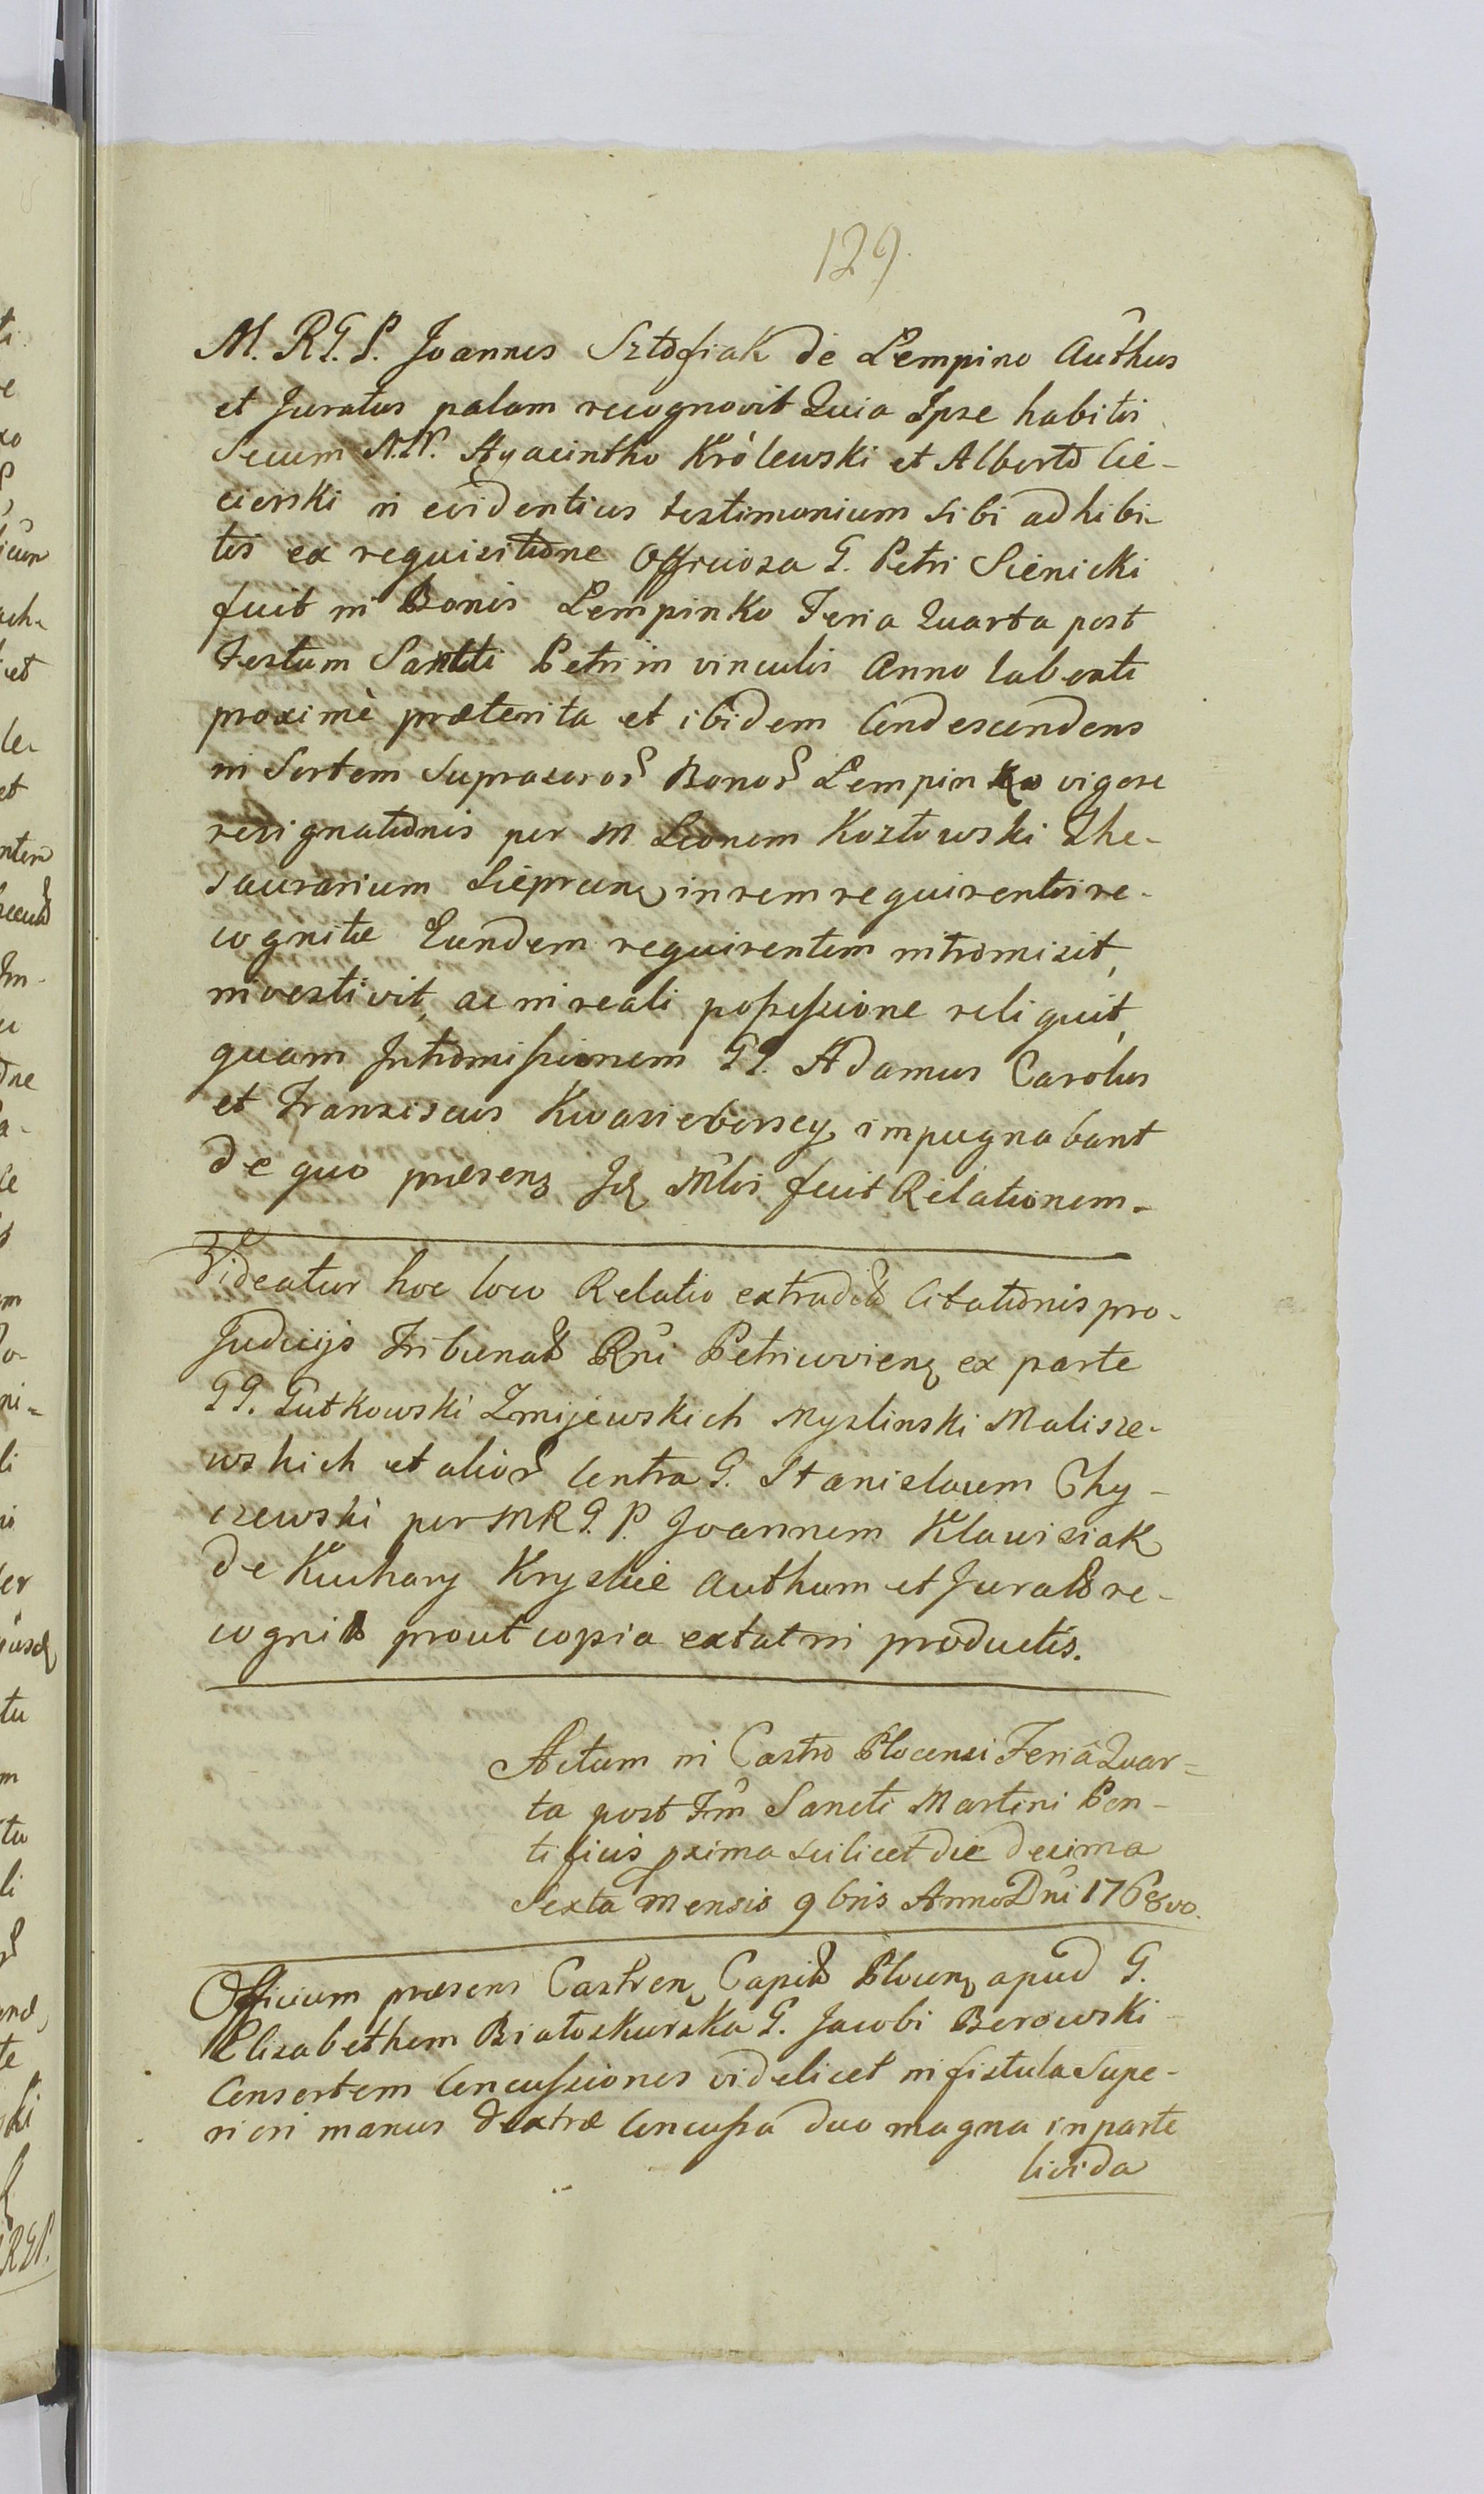 129.
M. R. G. P. Joannes Sztofiak de Lempino Authus
et Juratus palam recognovit Quia Ipse habitis
Secum N.N. Hyacintho Królewski et Alberto Cie-
cierski in evidentius testimonium sibi adhibi-
tis ex requisitione Officiosa G. Petri Sienicki
fuit in Bonis Lempinko Feria Quarta post
Festum Sancti Petri in vinculis Anno labenti
proximè præterita et ibidem Condescendens
in Sortem Suprascro Bono Lempinko vigore
resignationis per M Leonem Kozłowski The-
saurarium Sieprcen in rem requirentis re-
cognitæ Eundem requirentem intromisit,
investivit, ac in reali possessione reliquit,
quam Intromissionem GG. Adamus Carolus
et Franciscus Kwasieborscy impugnabant
de quo præsens Jd Mlis fuit Relationem.
Videatur hoc loco Relatio extradit Citationis pro
Judicijs Tribunal Rni Petricovien ex parte
GG. Gutkowski Zmijewskich Myslinski Malisze-
wskich et alior Contra G. Stanislaum Chy-
czewski per MRG.P. Joannem Klawisiak
de Kuchary Kryskie authum et Jurat re-
cognit prout copia extat in productis.
Actum in Castro Plocensi Feriâ Quar-
ta post Fm Sancti Martini Pon-
tificis pxima scilicet die decima
Sexta Mensis 9bris Anno Dni 1768vo.
Officium præsens Castren Capit Plocen apud G.
Elisabethem Białoskurska G. Jacobi Borowski
Consortem Concussiones videlicet in fistula Supe-
riori manus dextræ Concussa duo magna in parte
livida